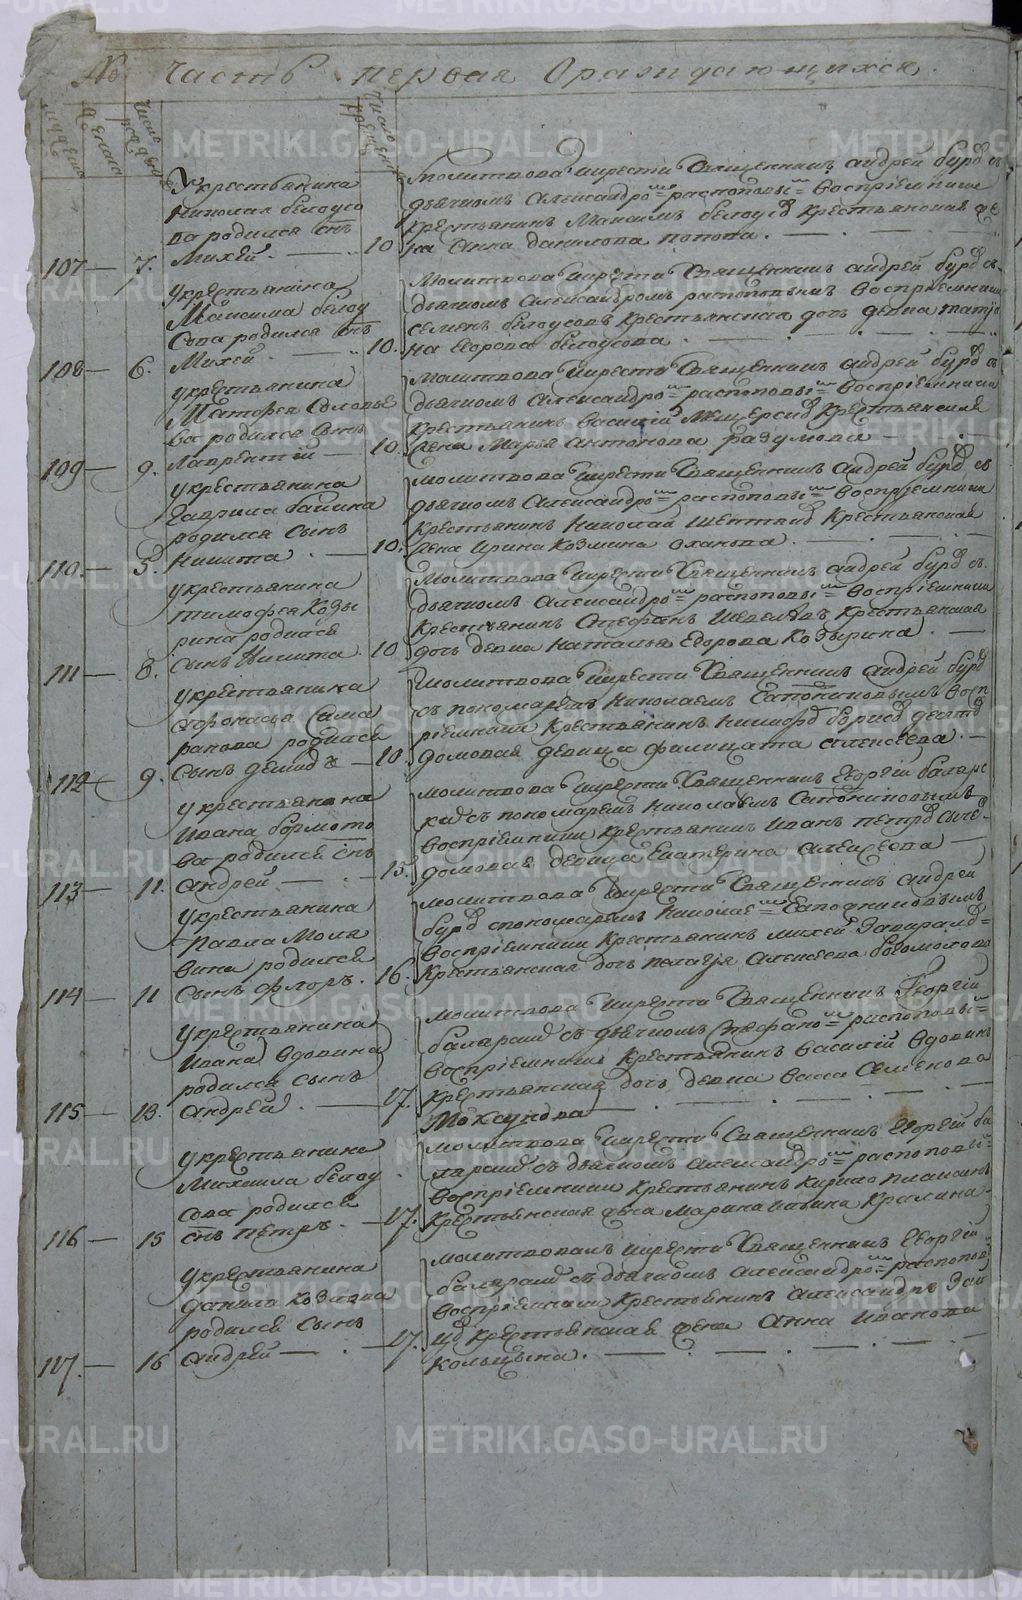 № Часть первая о раждающихся.
Число рожд
Число крещ
У крестьянина
Николая белоусо
ва родился снъ
107 — 7. Михей. — 10
Молитвовал и крести Священникъ андрей бурд съ
дьячком Александро распоповы Воспрiемники
крестьянинъ Максимъ белоусов крестьянская же
на Анна данилова попова. —
укрестьянина
Максима белоу
сова родился снъ
108 — 6. Михей. — 10.
Молитвова и крести Священникъ андрей бурд съ
дьячком Александромъ распоповым Воспрiемники
семенъ белоусовъ крестьянская дочь девка татiя
на Егорова белоусова. —
укрестьянина
Матфея Соловье
ва родился сынъ
109 — 9. Лаврентiй — 10.
Молитвова и крести Священникъ андрей бурд съ
дьячкомъ Александро распоповы Воспрiемники
крестьянинъ василiй Мещерскiй крестьянская
жена Марья Антонова разумова —
укрестьянина
Гаврила бабина
родился сынъ
110. — 5. Никита. — 10.
молитвова и крести Священникъ андрей бурд съ
дьячкомъ Александро распоповы воспрiемники
крестьянинъ Николай крестьянская
жена Ирина Козмина оханова. —
укрестьянина
тимофея Козы
рина родился
111 — 8. сынъ Никита. 10
Молитвова и крести Священникъ андрей бурд съ
дьячкомъ Александро распоповы воспрiемники
крестьянинъ Стефанъ Шевелевъ крестьянская
дочь девка Наталья Егорова Козырина. —
укрестьянина
Афонасья Сама
ранова родился
112 — 9. Сынъ демидъ — 10
молитвова и крести Священникъ андрей бурд
съ пономаремъ Николаемъ Сапожниковымъ восп
рiемники крестьянинъ борисов
домовая девица фалицата алексеева. —
укрестьянина
Ивана бормото
ва родился снъ
113 — 11. андрей — 15.
молитвова и крести Священникъ Георгiй балара
съ пономаремъ Николаемъ Сапожниковымъ
воспрiемники крестьянинъ Иванъ петров
домовая девица Екатерина алексеева —
укрестьянина
Павла Мола
вина родился
114 — 11 Сынъ флоръ. 16.
молитвова и крести Священникъ андрей
бурд с пономаремъ Николае Сапожниковымъ
воспрiемники крестьянинъ михей
крестьянская дочь пелагея Алексеева богомолова
укрестьянина
Ивана вдовина
родился сынъ
115 — 13. андрей. — 17.
молитвова и крести Священникъ Георгiй
балараш съ дьячкомъ Стефано распоповы
воспрiемники крестьянинъ василiй вдовинъ
крестьянская дочь девка васса Семенова
Моксунова —
укрестьянина
Михаила белоу
сова родился
116 — 15 снъ петръ. — 17.
молитвова и крести Священникъ Егоргiй ба
лараш съ дьячкомъ александро распоповы
воспрiемники крестьянинъ кирило
крестьянская жена Марина Ильина Кралина.
укрестьянина
данила козлова
родился сынъ
117. — 16 андрей — 17.
молитвовалъ и крести Священникъ Георгiй
балараш съ дьячкомъ александро распопов
воспрiемники крестьянинъ александръ зай
цов крестьянская жена анна Иванова
кольцына. —